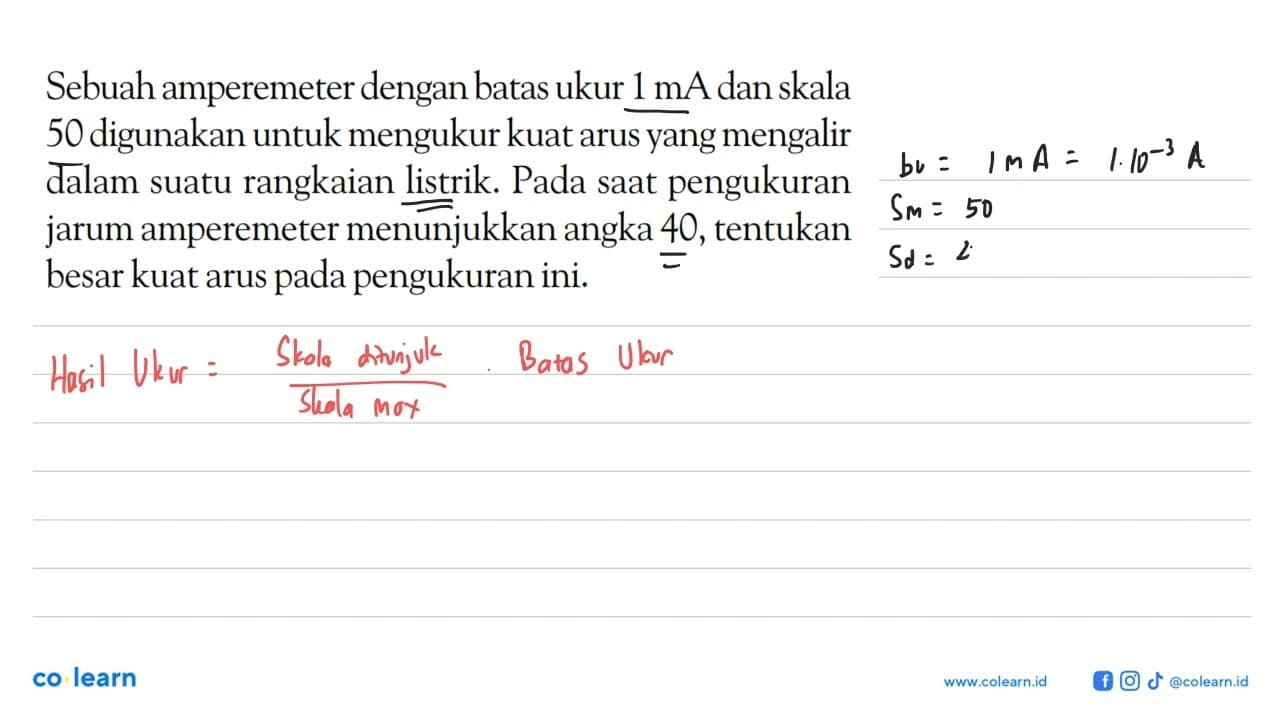 Sebuah amperemeter dengan batas ukur 1 mA dan skala
50 digunakan untuk mengukur kuat arus yang mengalir
dalam suatu rangkaian listrik. Pada saat pengukuran
jarum amperemeter menunjukkan angka 40, tentukan
besar kuat arus pada pengukuran ini.
bu = 1 mA = 1.10⁻³ A
Sm = 50
Sd =
Hasil Ukur = Skala ditunjuk . Batas Ukur
Skala max
co learn
www.colearn.id @colearn.id